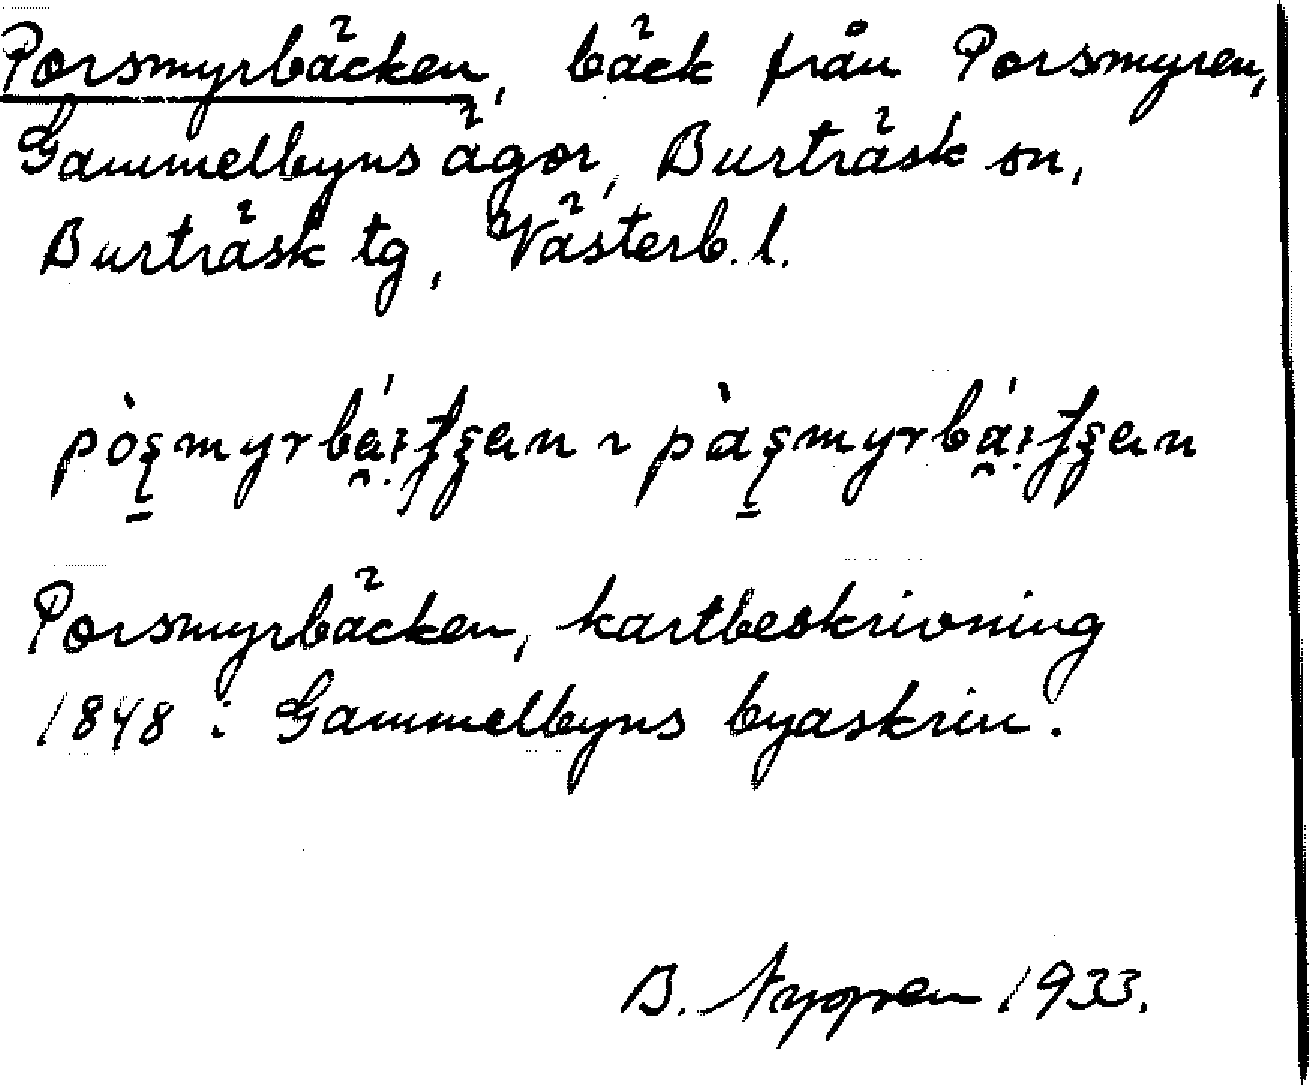 Porsmyrbäcken, bäck från Porsmyren,
Gammelbyns ägor, Burträsk sn,
Burträsk tg, Västerb. l.
Porsmyrbäcken, kartbeskrivning
1848 i Gammelbyns byaskrin.
B. 1933.